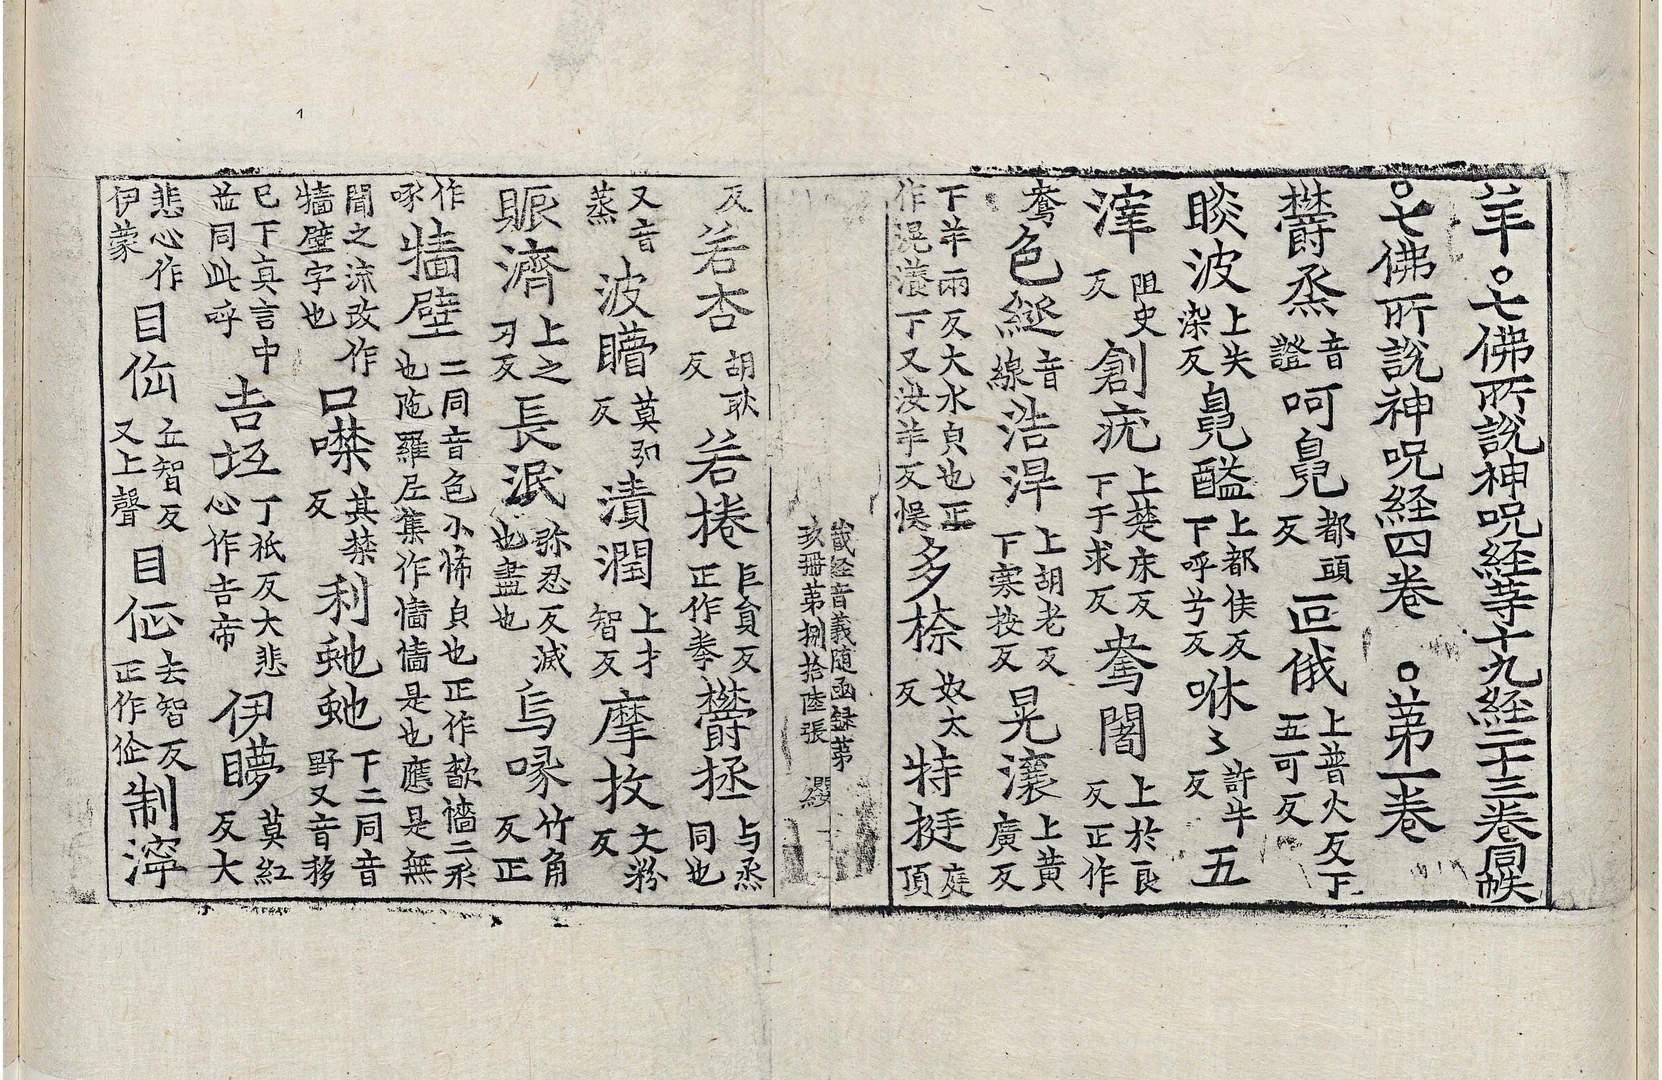 羊○七佛所說神呪経等十九経二十三卷同帙
○七佛所說神呪経四卷 ○苐一卷
欝烝音證呵㲋都頭反叵俄上普火反下五可反
睒波上失染反㲋醯上都侯反下呼兮反咻〻許牛反五
滓阻史反創疣上楚床反下于求反鴦闍上於良反正作
鴦色綖音線浩汗上胡老反下寒按反晃瀼上黄廣反
下羊兩反大水皃也正作滉瀁丁又汝羊反悮多㮈奴太反特挺庭頂
反若杏胡耿反若捲巨員反正作拳欝拯与烝同也
又音蒸波瞢莫北反漬潤上才智反摩抆文粉反
賑濟上之刃反長泯弥忍反滅也盡也鳥啄竹角反正
作啄牆壁二同音色小怖皃也正作歰濇二形也陁羅尼集作懎懎是也應是無
聞之流改作牆壁字也口噤其禁反利虵虵下二同音野又音移
巳下真言中並同此呼𠮷坻丁祇反大悲心作𠮷帝伊矇莫紅反大
悲心作伊蒙目伍丘智反又上聲目㐸去智反正作企制濘
蔵経音義随函録苐
玖冊苐捌拾陸張